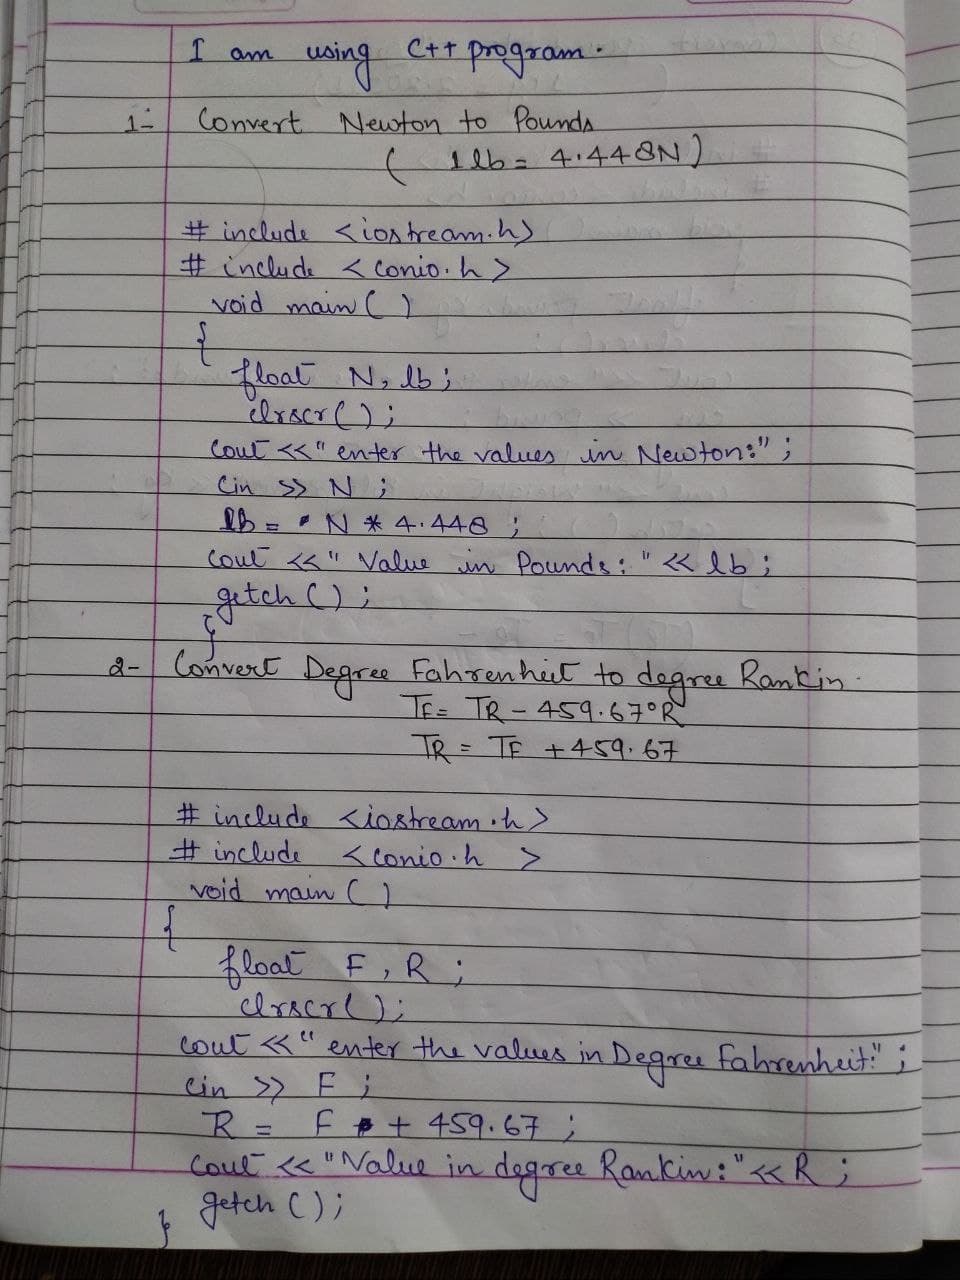 I am using C++ program.
1- Convert Newton to Pounds
( 1 lb = 4.448N )
# include <iostream.h>
# include <conio.h>
void main ( )
{
float N, lb ;
clrscr ( ) ;
cout <<" enter the values in Newton:" ;
Cin >> N ;
lb = N * 4.448 ;
cout <<" Value in Pounds: " << lb ;
getch ( ) ;
}
2- Convert Degree Fahrenheit to degree Rankin.
TF = TR - 459.67°R
TR = TF + 459.67
# include <iostream.h>
# include <conio.h >
void main ( )
{
float F , R ;
clrscr ( ) ;
cout <<" enter the values in Degree Fahrenheit:" ;
cin >> F ;
R = F + 459.67 ;
cout <<"Value in degree Rankin:"<< R ;
getch ( ) ;
}